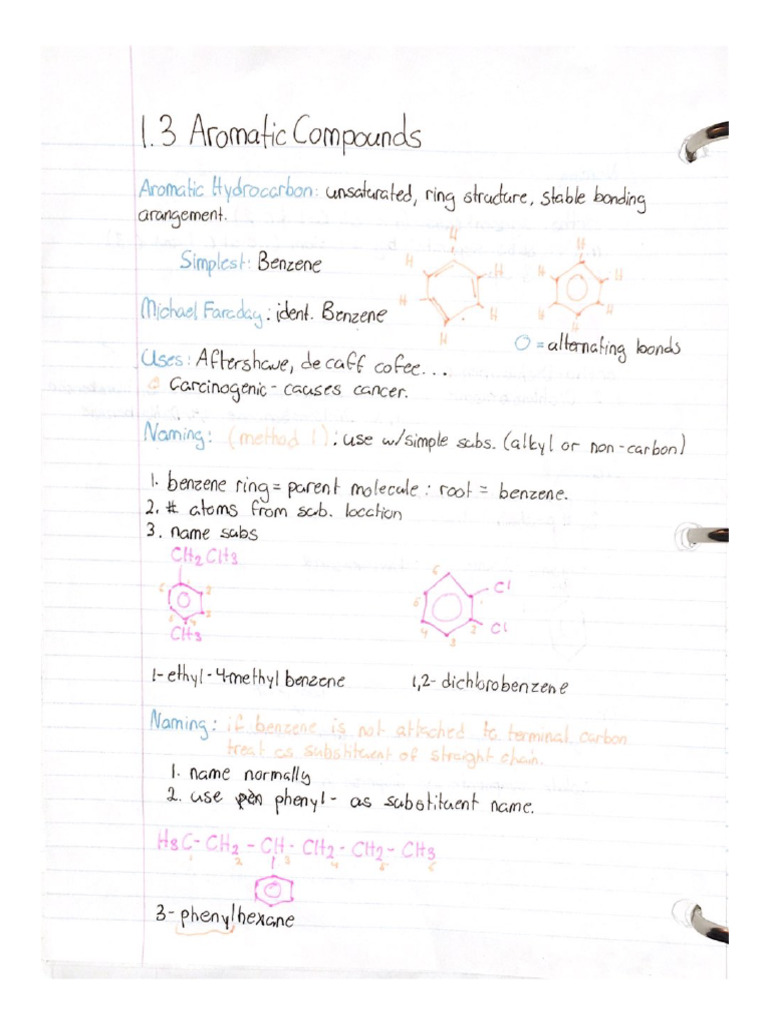 1.3 Aromatic Compounds
Aromatic Hydrocarbon: unsaturated, ring structure, stable bonding
arangement.
Simplest: Benzene
H H H H H H
H H H H H H
Michael Faraday: ident. Benzene
O = alternating bonds
Uses: Aftershave, decaff cofee...
Carcinogenic - causes cancer.
Naming: (method 1): use w/simple subs. (alkyl or non-carbon)
1. benzene ring = parent molecule : root = benzene.
2. # atoms from sub. location
3. name subs
CH2CH3
6 2 5 3 4
CH3
6 5 4 3 2
Cl
Cl
1-ethyl-4-methyl benzene
1,2-dichlorobenzene
Naming: if benzene is not attached to terminal carbon
treat as substituent of straight chain.
1. name normally
2. use phenyl- as substituent name.
H3C-CH2-CH-CH2-CH2-CH3
1 2 3 4 5 6
3-phenylhexane